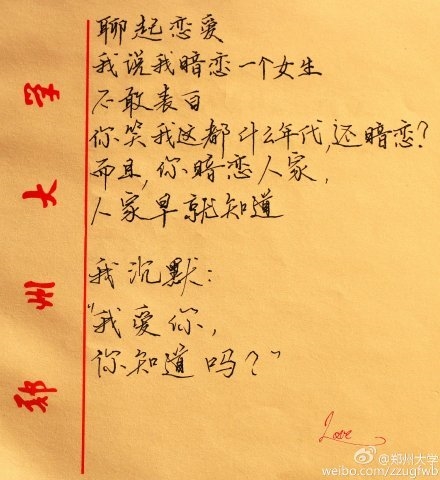 聊起恋爱
我说我暗恋一个女生
不敢表白
你笑我这都什么年代,还暗恋?
而且,你暗恋人家,
人家早就知道
我沉默:
"我爱你,
你知道吗?"
郑州大学
Love
@郑州大学
weibo.com/zzugfwb